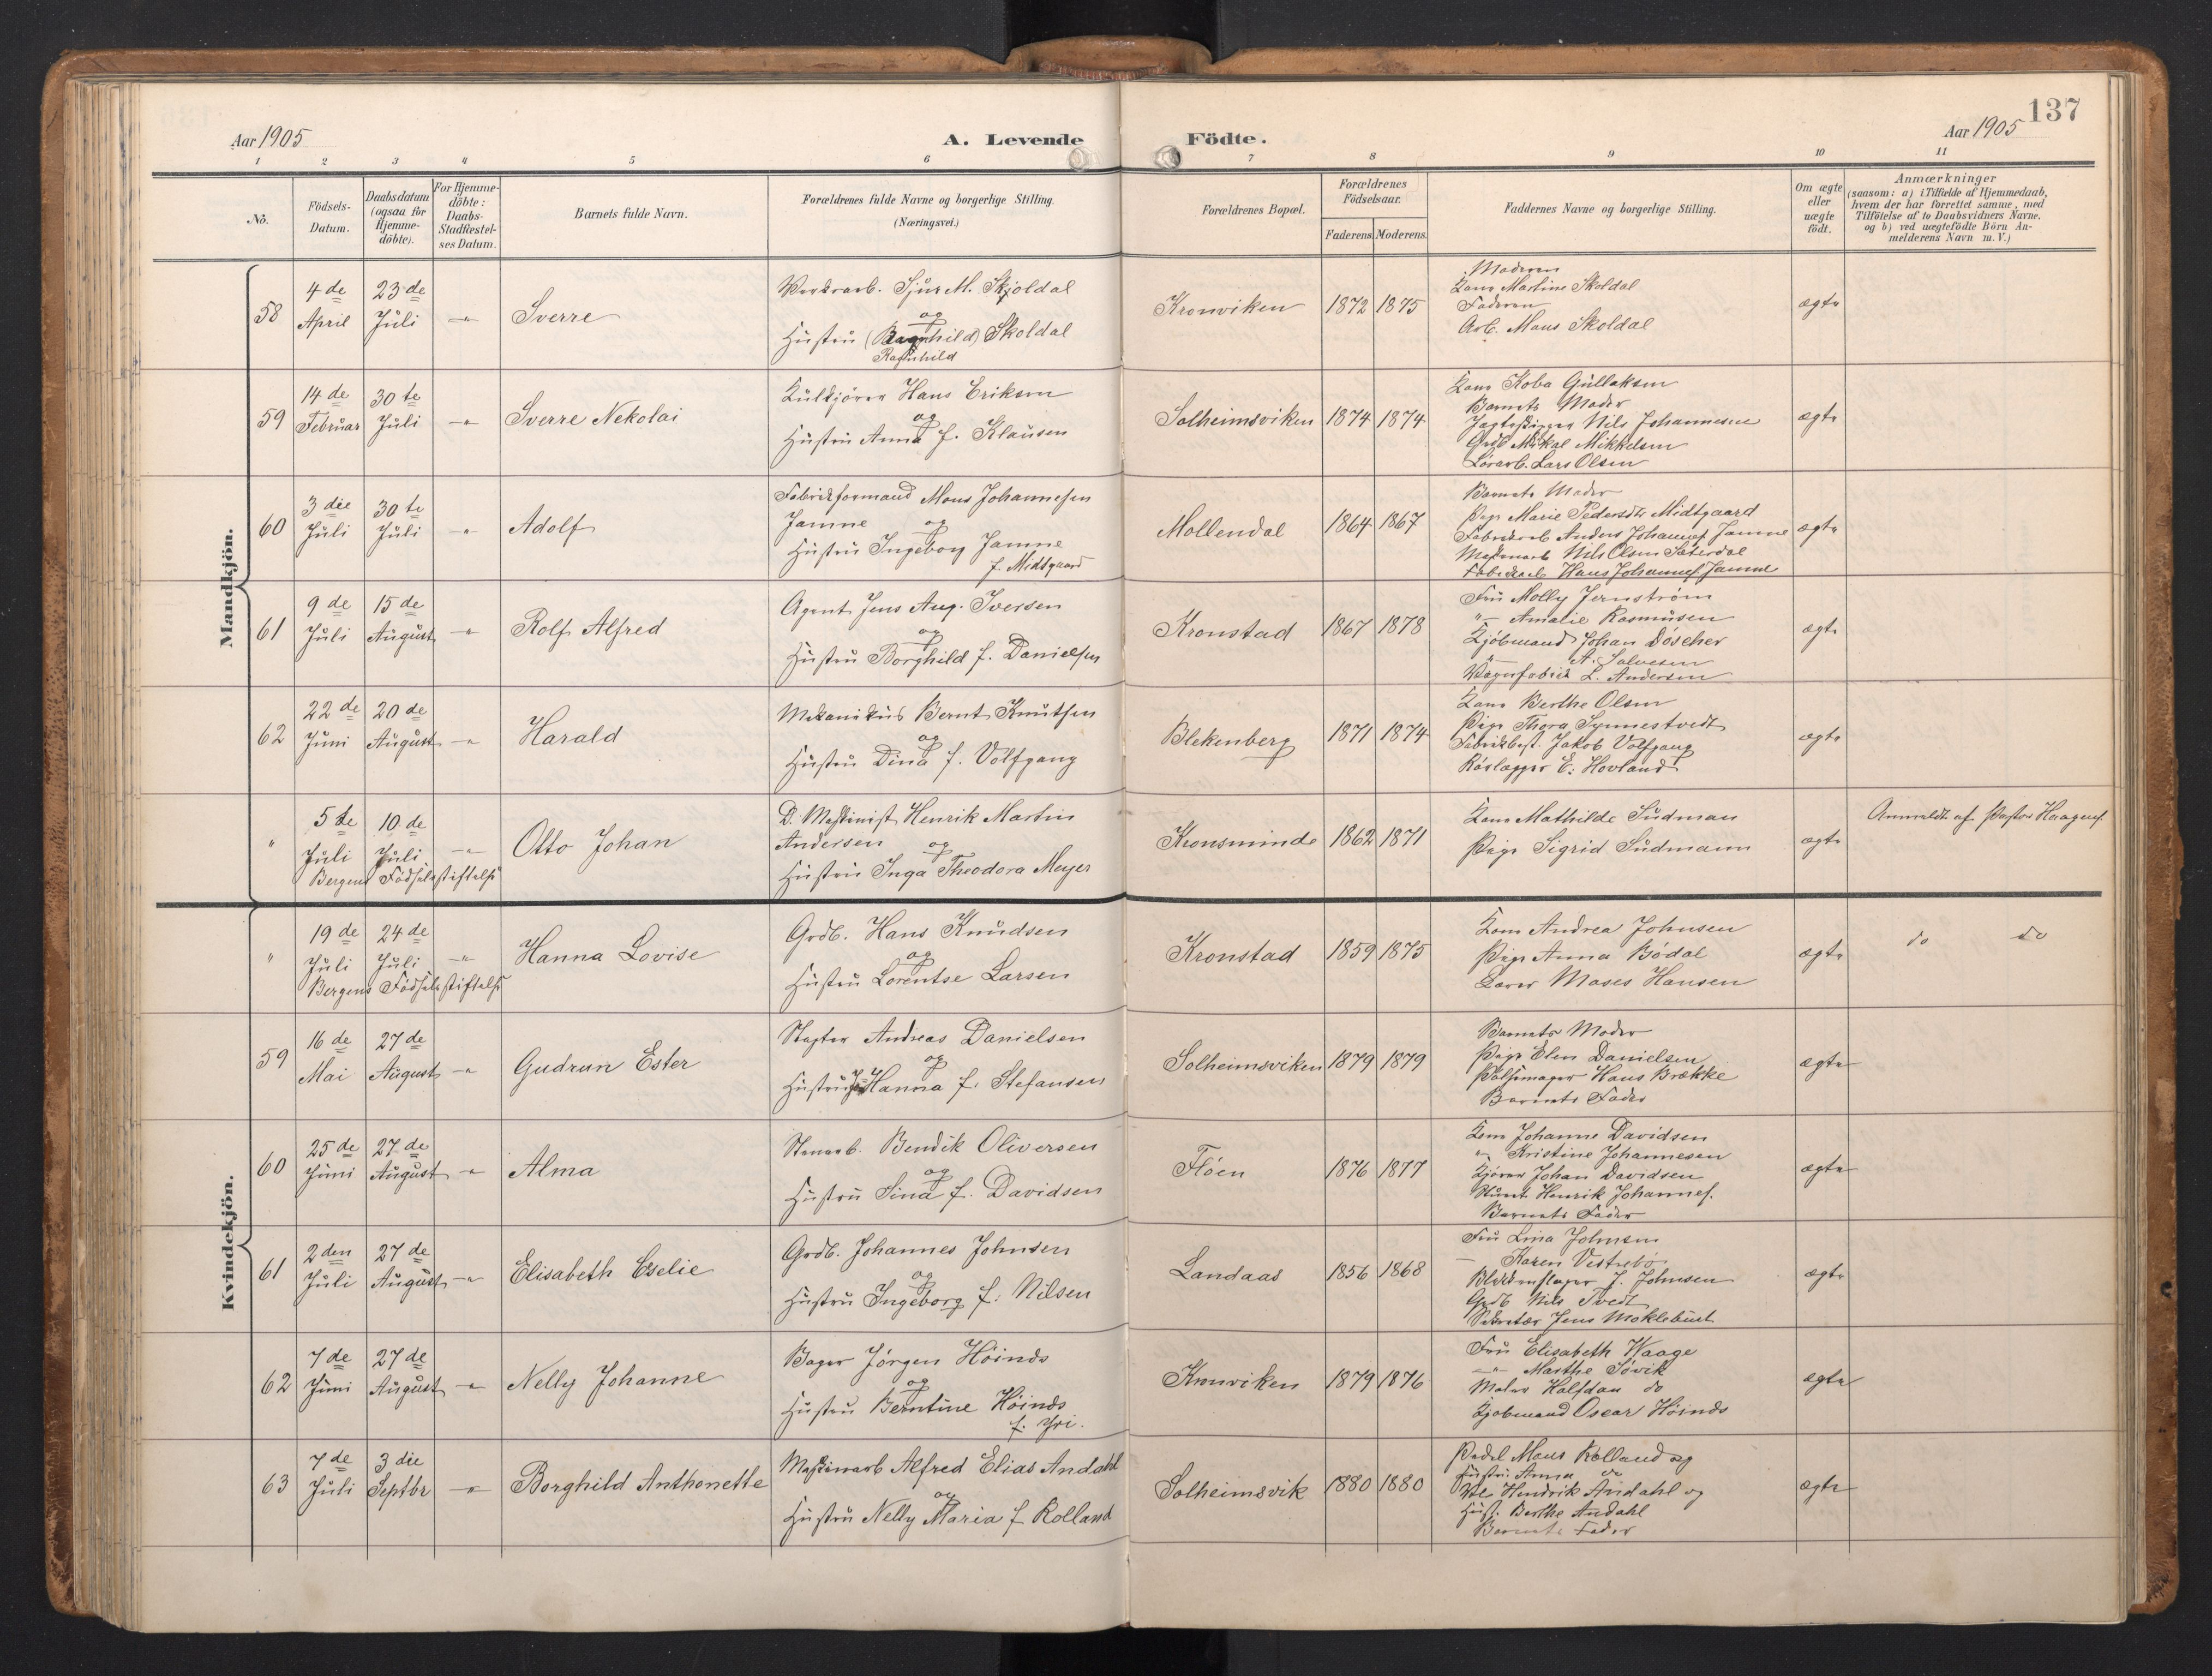 137
Aar 1905
A. Levende Födte.
Aar 1905
1 2 3 4 5 6 7 8 9 10 11
No.
Födsels-
Datum.
Daabsdatum
(ogsaa for
Hjemme-
döbte).
For Hjemme-
döbte:
Daabs-
Stadfestel-
ses Datum.
Barnets fulde Navn.
Forældrenes fulde Navne og borgerlige Stilling.
(Næringsvei.)
Forældrenes Bopæl.
Forældrenes
Födselsaar.
Faderens. Moderens.
Faddernes Navne og borgerlige Stilling.
Om ægte
eller
uægte
födt.
Anmærkninger
(saasom: a) i Tilfælde af Hjemmedaab,
hvem der har forrettet samme, med
Tilföielse af to Daabsvidners Navne.
og b) ved uægtefödte Börn An-
melderens Navn m. V.)
Mandkjön.
58
4 de
April
23 de
Juli
Sverre
Sjur M. Skjoldal
og
Hustru (Bagnhild) Skoldal
Ragnhild
Kronviken
1872 1875
Moderen
Kone Martine Skoldal
Faderen
Arb. Mons Skoldal
ægte
59
14 de
Februar
30 te
Juli
Sverre Nekolai
Kulkjører Hans Eriksen
og
Hustru Anna f. Klausen
Solheimsviken
1874 1874
Kone Koba Gullaksen
Barnets Moder
Nils Johannesen
Grdb Mikal Mikkelsen
Lars Olsen
ægte
60
3 die
Juli
30 te
Juli
Adolf
Fabrikformand Mons Johannesen
Jamne og
Hustru Ingeborg Jamne
f. Midtgaard
Mollendal
1864 1867
Barnets Moder
Pige Marie Pedersdtr Midtgaard
Fabrikarb Anders Johannes Jamne
Nils Olsen Säterdal
Fabrikarb Hans Johannes Jamne
ægte
61
9 de
Juli
15 de
August
Rolf Alfred
Agent Jens Aug. Iversen
og
Hustru Borghild f. Danielsen
Kronstad
1867 1878
Fru Molly Jernström
" Amalie Rasmusen
Kjøbmand Johan Döscher
" A. Salvesen
L. Andersen
ægte
62
22 de
Juni
20 de
August
Harald
Mekanikus Bernt Knutsen
og
Hustru Dina f. Volfgang
Blekenberg
1871 1874
Kone Berthe Olsen
Pige Thora Synnestvedt
Fabrikbest. Jakob Volfgang
Rörlægger E. Hovland
ægte
"
5 te
Juli
10 de
Juli
Bergens Födselsstiftelse
Otto Johan
D. Maskinist Henrik Martin
Andersen og
Hustru Inga Theodora Meyer
Kronsminde
1862 1871
Kone Mathilde Sudman
Pige Sigrid Sudmann
ægte
Anmeldt af Pastor Haagens.
Kvindekjön.
"
19 de
Juli
24 de
Juli
Bergens Födselsstiftelse
Hanna Lovise
Grdb. Hans Knudsen
og
Hustru Lorentse Larsen
Kronstad
1859 1875
Kone Andrea Johnsen
Pige Anna Bödal
Lærer Moses Hansen
ægte
do do
59
16 de
Mai
27 de
August
Gudrun Ester
Andreas Danielsen
og
Hustru Hanna f. Stefansen
Solheimsviken
1879 1879
Barnets Moder
Pige Elen Danielsen
Pölsemager Hans Brække
Barnets Fader
ægte
60
25 de
Juni
27 de
August
Alma
Stenarb. Bendik Oliversen
og
Hustru Sina f. Davidsen
Flöen
1876 1877
Kone Johanne Davidsen
" Kristine Johannesen
Kjører Johan Davidsen
Henrik Johannes.
Barnets Fader
ægte
61
2 den
Juli
27 de
August
Elisabeth Eselie
Grdb. Johannes Johnsen
og
Hustru Ingeborg f. Nilsen
Landaas
1856 1868
Fru Lina Johnsen
— Karen Vestrebö
Blikkenslager J. Johnsen
Grdb Nils Tvedt
Sekretær Jens Moklebust
ægte
62
7 de
Juni
27 de
August
Nelly Johanne
Bager Jörgen Höinds
og
Hustru Berntine Höinds
f. Yri.
Kronviken
1879 1876
Fru Elisabeth Waage
" Marthe Sövik
Maler Halfdan do
Kjøbmand Oscar Höinds
ægte
63
7 de
Juli
3 die
Septbr
Borghild Anthonette
Maskinarb Alfred Elias Andahl
og
Hustru Nelly Maria f Rolland
Solheimsvik
1880 1880
Mons Rolland og
Hustru Anna do
Hendrik Andahl og
Hust. Berthe Andahl
Barnets Fader
ægte